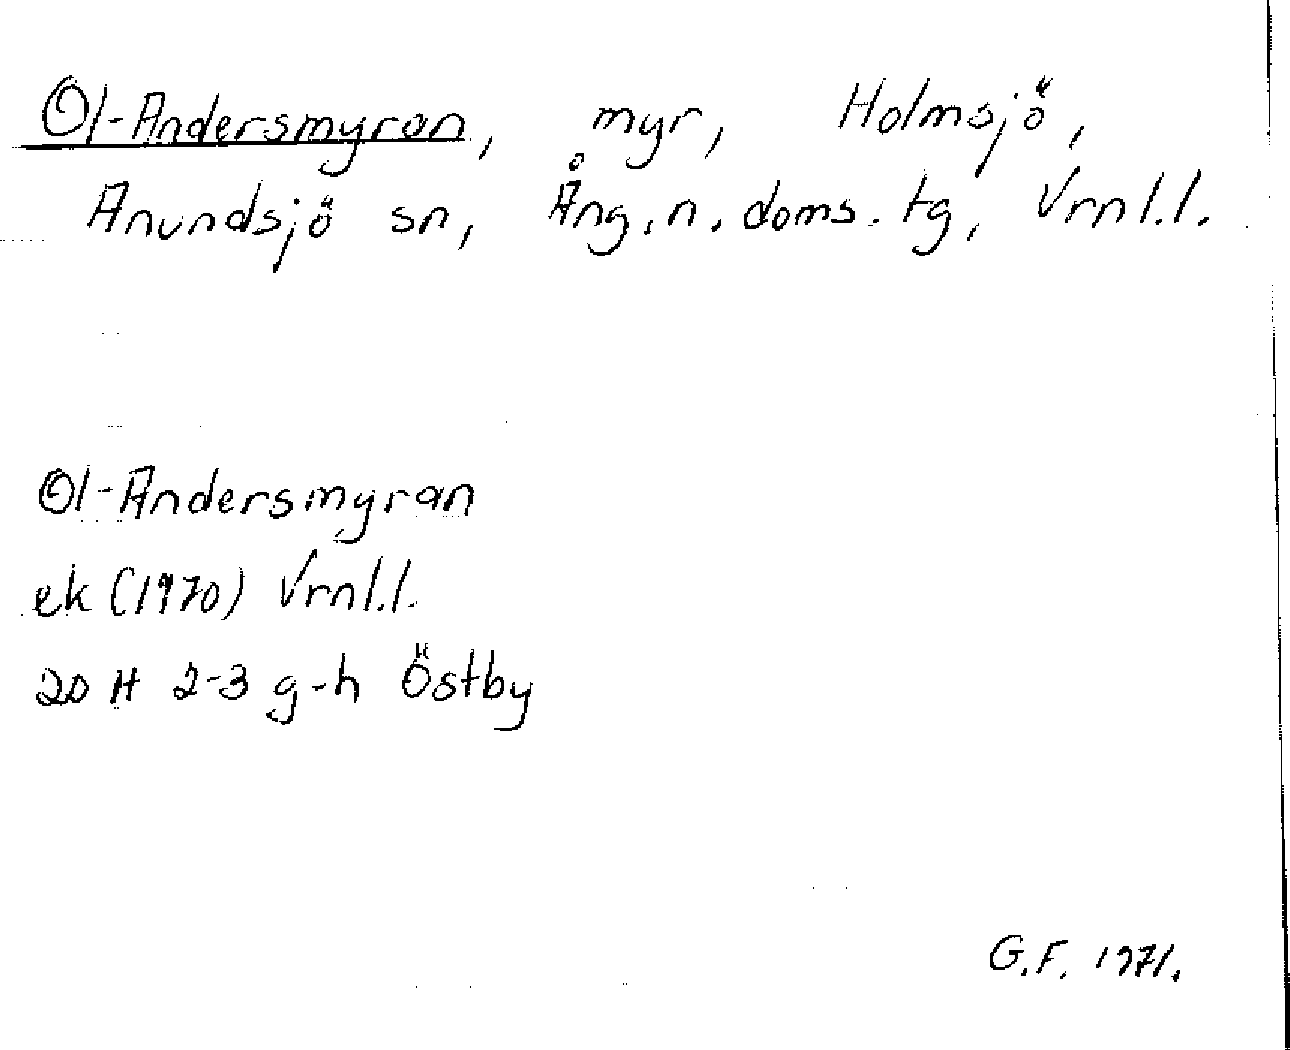 Ol-Andersmyran, myr, Holmsjö,
Anundsjö sn, Ång.n.doms.tg, Vrnl.l.
Ol-Andersmyran
ek (1970) Vrnl.l.
20 H 2-3 g-h Östby
G.F. 1971.